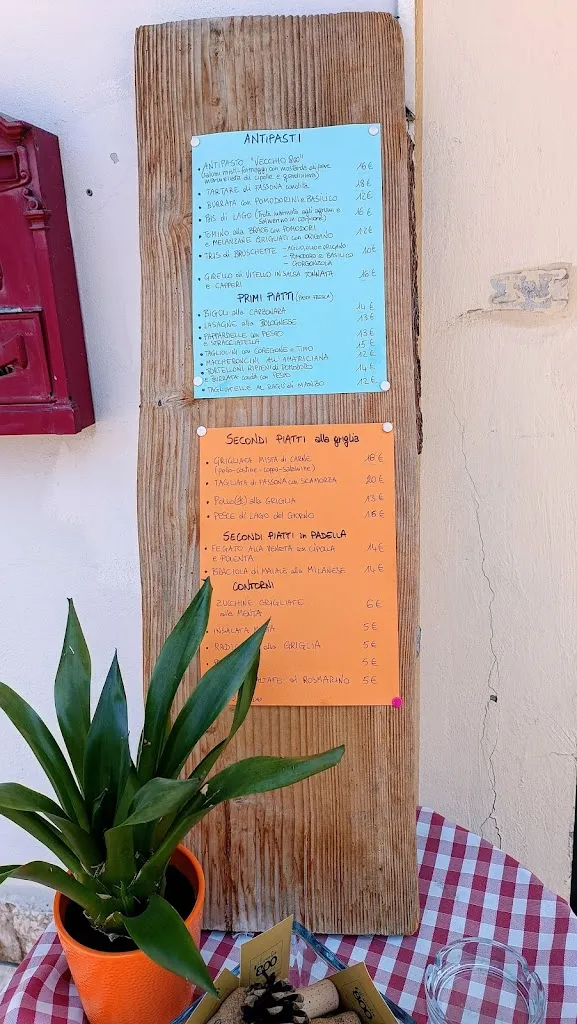 ANTIPASTI
• ANTIPASTO "VECCHIO 800" 16€
(salumi misti-formaggi con mostarda di pere
marmellata di cipolle e giardiniera)
• TARTARE di FASSONA condita 18€
• BURRATA con POMODORINI e BASILICO 12€
• BIS di LAGO (Trota marinata agli agrumi e 16€
salmerino in carpione)
• TOMINO alla BRACE con POMODORI 12€
e MELANZANE GRIGLIATI con ORIGANO
• TRIS di BRUSCHETTE - AGLIO, OLIO e ORIGANO 10€
- POMODORO e BASILICO
- GORGONZOLA
• GIRELLO di VITELLO IN SALSA TONNATA 16€
e CAPPERI
PRIMI PIATTI (PASTA FRESCA)
• BIGOLI alla CARBONARA 14€
• LASAGNE alla BOLOGNESE 13€
• PAPPARDELLE con PESTO 13€
e STRACCIATELLA
• TAGLIOLINI con COREGONE e TIMO 15€
• MACCHERONCINI ALL'AMATRICIANA 12€
• TORTELLONI RIPIENI di POMODORO 14€
e BURRATA conditi con PESTO
• TAGLIATELLE AL RAGÙ di MANZO 12€
SECONDI PIATTI alla griglia
• GRIGLIATA MISTA di CARNE 18€
(pollo-costine-coppa-salamine)
• TAGLIATA di FASSONA con SCAMORZA 20€
• POLLO alla GRIGLIA 13€
• PESCE di LAGO del GIORNO 16€
SECONDI PIATTI in PADELLA
• FEGATO ALLA VENETA con CIPOLLA 14€
e POLENTA
• BRACIOLA di MAIALE alla MILANESE 14€
CONTORNI
ZUCCHINE GRIGLIATE 6€
alla MENTA
• INSALATA 5€
• RADI alla GRIGLIA 5€
5€
al ROSMARINO 5€